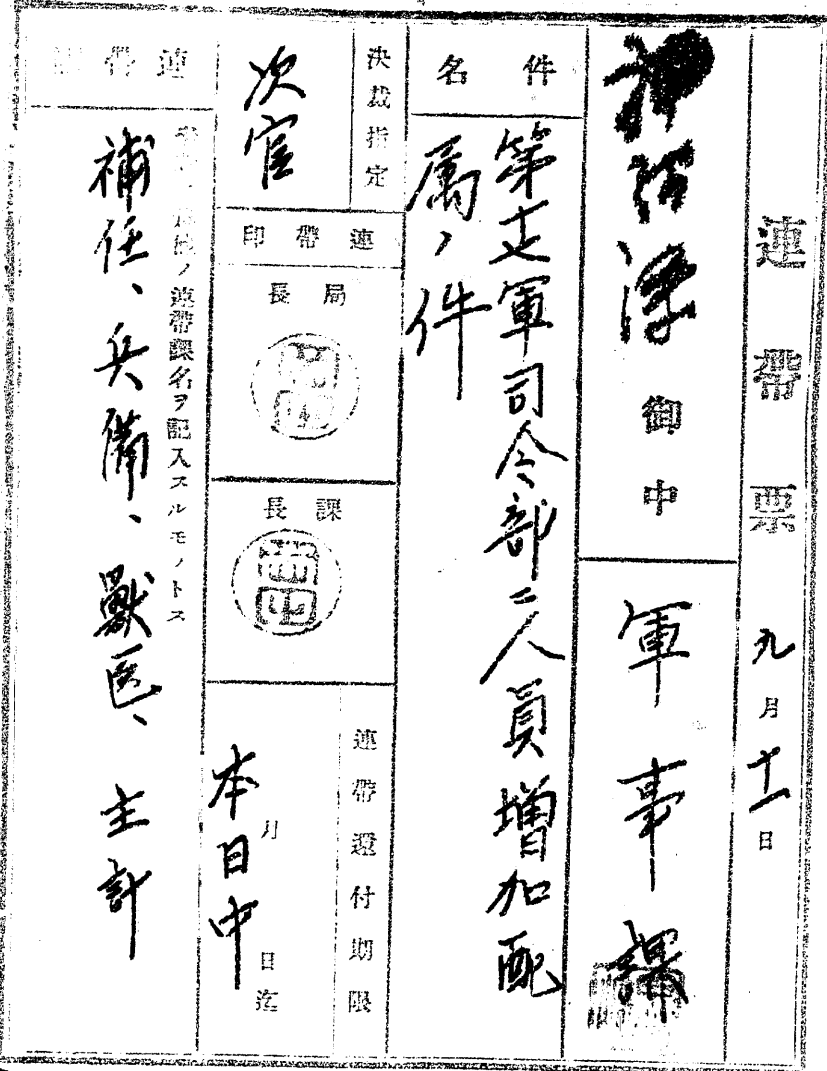 連帶票 九月十一日
御中
軍事課
件名
第十七軍司令部ニ人員増加配
属ノ件
決裁指定
次官
連帶印
局長
課長
連帶還付期限
月 日迄
本日中
連帶課
ノ連帶課名ヲ記入スルモノトス
補任、兵備、獸医、主計